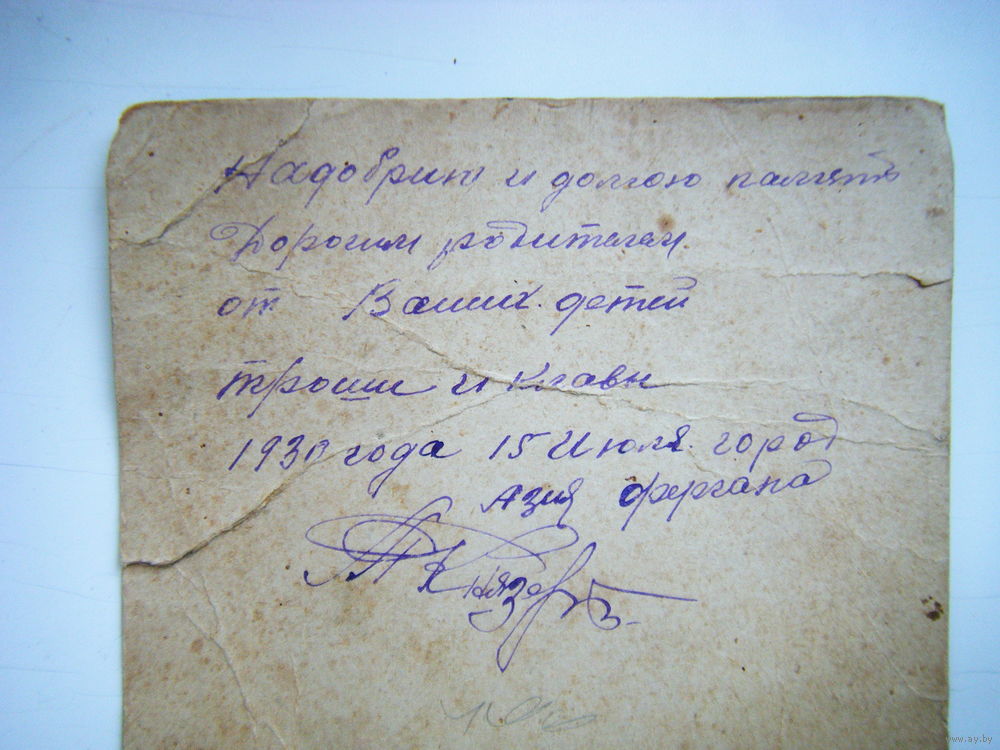 Надобрию и долгою память
Дорогим родителям.
от Ваших детей
троши и клавы
1930 года 15 Июля город
Азия фергана
Т Князев
www.ay.by